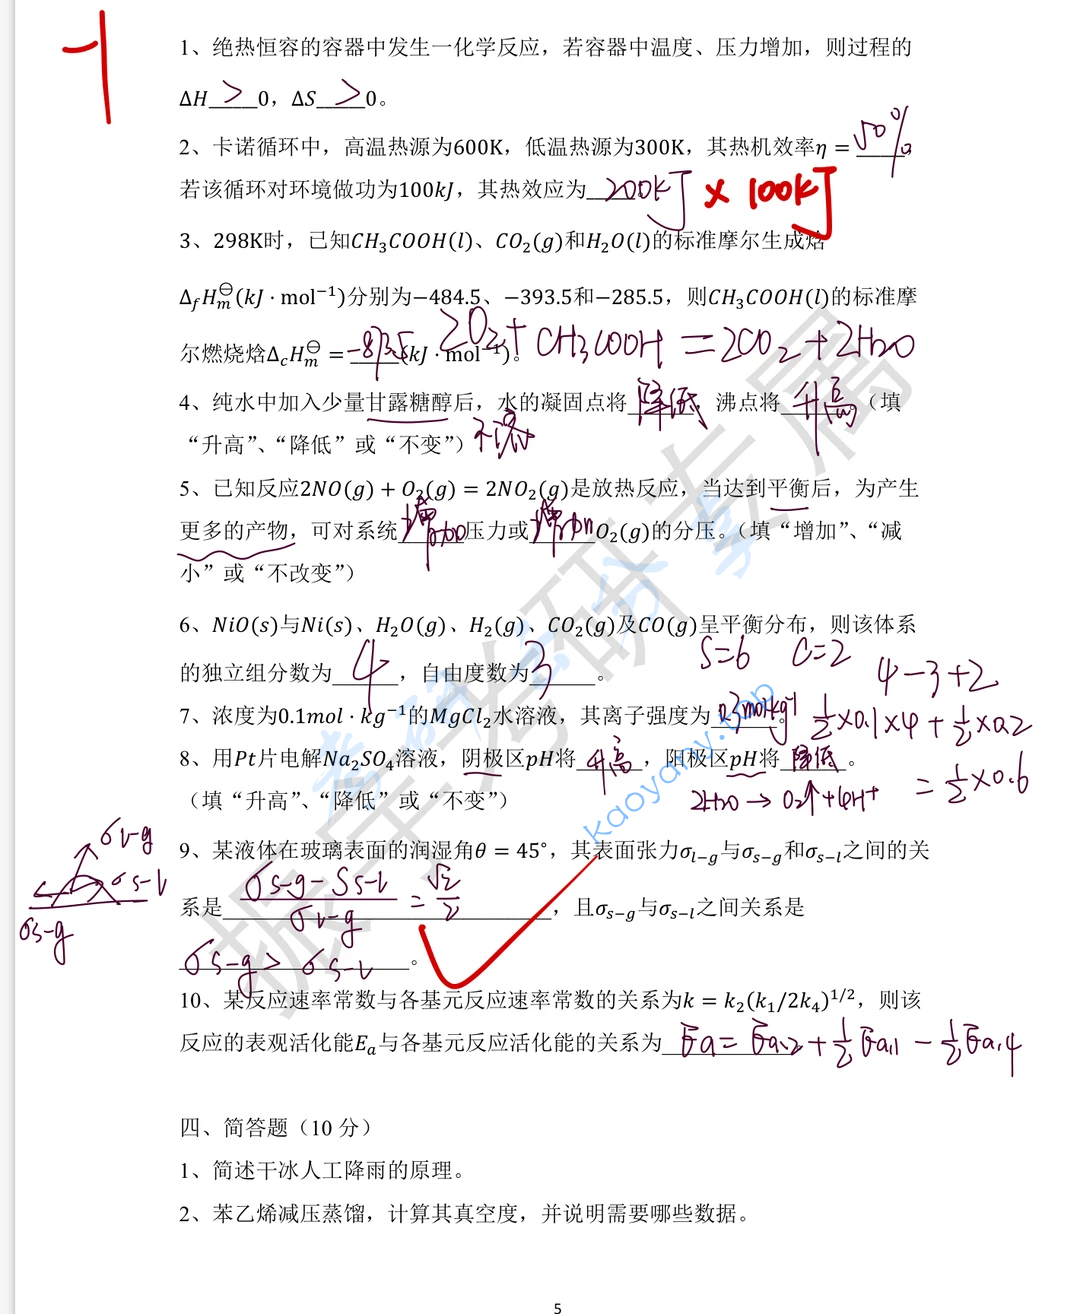 1、绝热恒容的容器中发生一化学反应，若容器中温度、压力增加，则过程的
ΔH > 0，ΔS > 0。
2、卡诺循环中，高温热源为600K，低温热源为300K，其热机效率η = 50%。
若该循环对环境做功为100kJ，其热效应为 200kJ × 100kJ
3、298K时，已知CH₃COOH(l)、CO₂(g)和H₂O(l)的标准摩尔生成焓
Δ_fH_m^⊖(kJ · mol⁻¹)分别为−484.5、−393.5和−285.5，则CH₃COOH(l)的标准摩
尔燃烧焓Δ_cH_m^⊖ = -873.5 (kJ · mol⁻¹)。 2O₂ + CH₃COOH = 2CO₂ + 2H₂O
4、纯水中加入少量甘露糖醇后，水的凝固点将 降低 沸点将 升高 （填
“升高”、“降低”或“不变”）
5、已知反应2NO(g) + O₂(g) = 2NO₂(g)是放热反应，当达到平衡后，为产生
更多的产物，可对系统 增加 压力或 增加 O₂(g)的分压。（填“增加”、“减
小”或“不改变”）
6、NiO(s)与Ni(s)、H₂O(g)、H₂(g)、CO₂(g)及CO(g)呈平衡分布，则该体系
S=6 C=2
的独立组分数为 4 ，自由度数为 3 。 4-3+2
7、浓度为0.1mol · kg⁻¹的MgCl₂水溶液，其离子强度为 0.3mol·kg⁻¹。 ½×0.1×4 + ½×0.2
= ½×0.6
8、用Pt片电解Na₂SO₄溶液，阴极区pH将 升高 ，阳极区pH将 降低 。
（填“升高”、“降低”或“不变”） 2H₂O → O₂↑+4H⁺
σl-g
σs-l
σs-g
9、某液体在玻璃表面的润湿角θ = 45°，其表面张力σ_{l−g}与σ_{s−g}和σ_{s−l}之间的关
系是 (σs-g - Ss-l)/σl-g = √2/2 ，且σ_{s−g}与σ_{s−l}之间关系是
σs-g > σs-l 。
10、某反应速率常数与各基元反应速率常数的关系为k = k₂(k₁/2k₄)^{1/2}，则该
反应的表观活化能E_a与各基元反应活化能的关系为 Ea = Ea,2 + ½Ea,1 - ½Ea,4
四、简答题（10 分）
1、简述干冰人工降雨的原理。
2、苯乙烯减压蒸馏，计算其真空度，并说明需要哪些数据。
5
振宇考研专属
kaoyany.top
-1